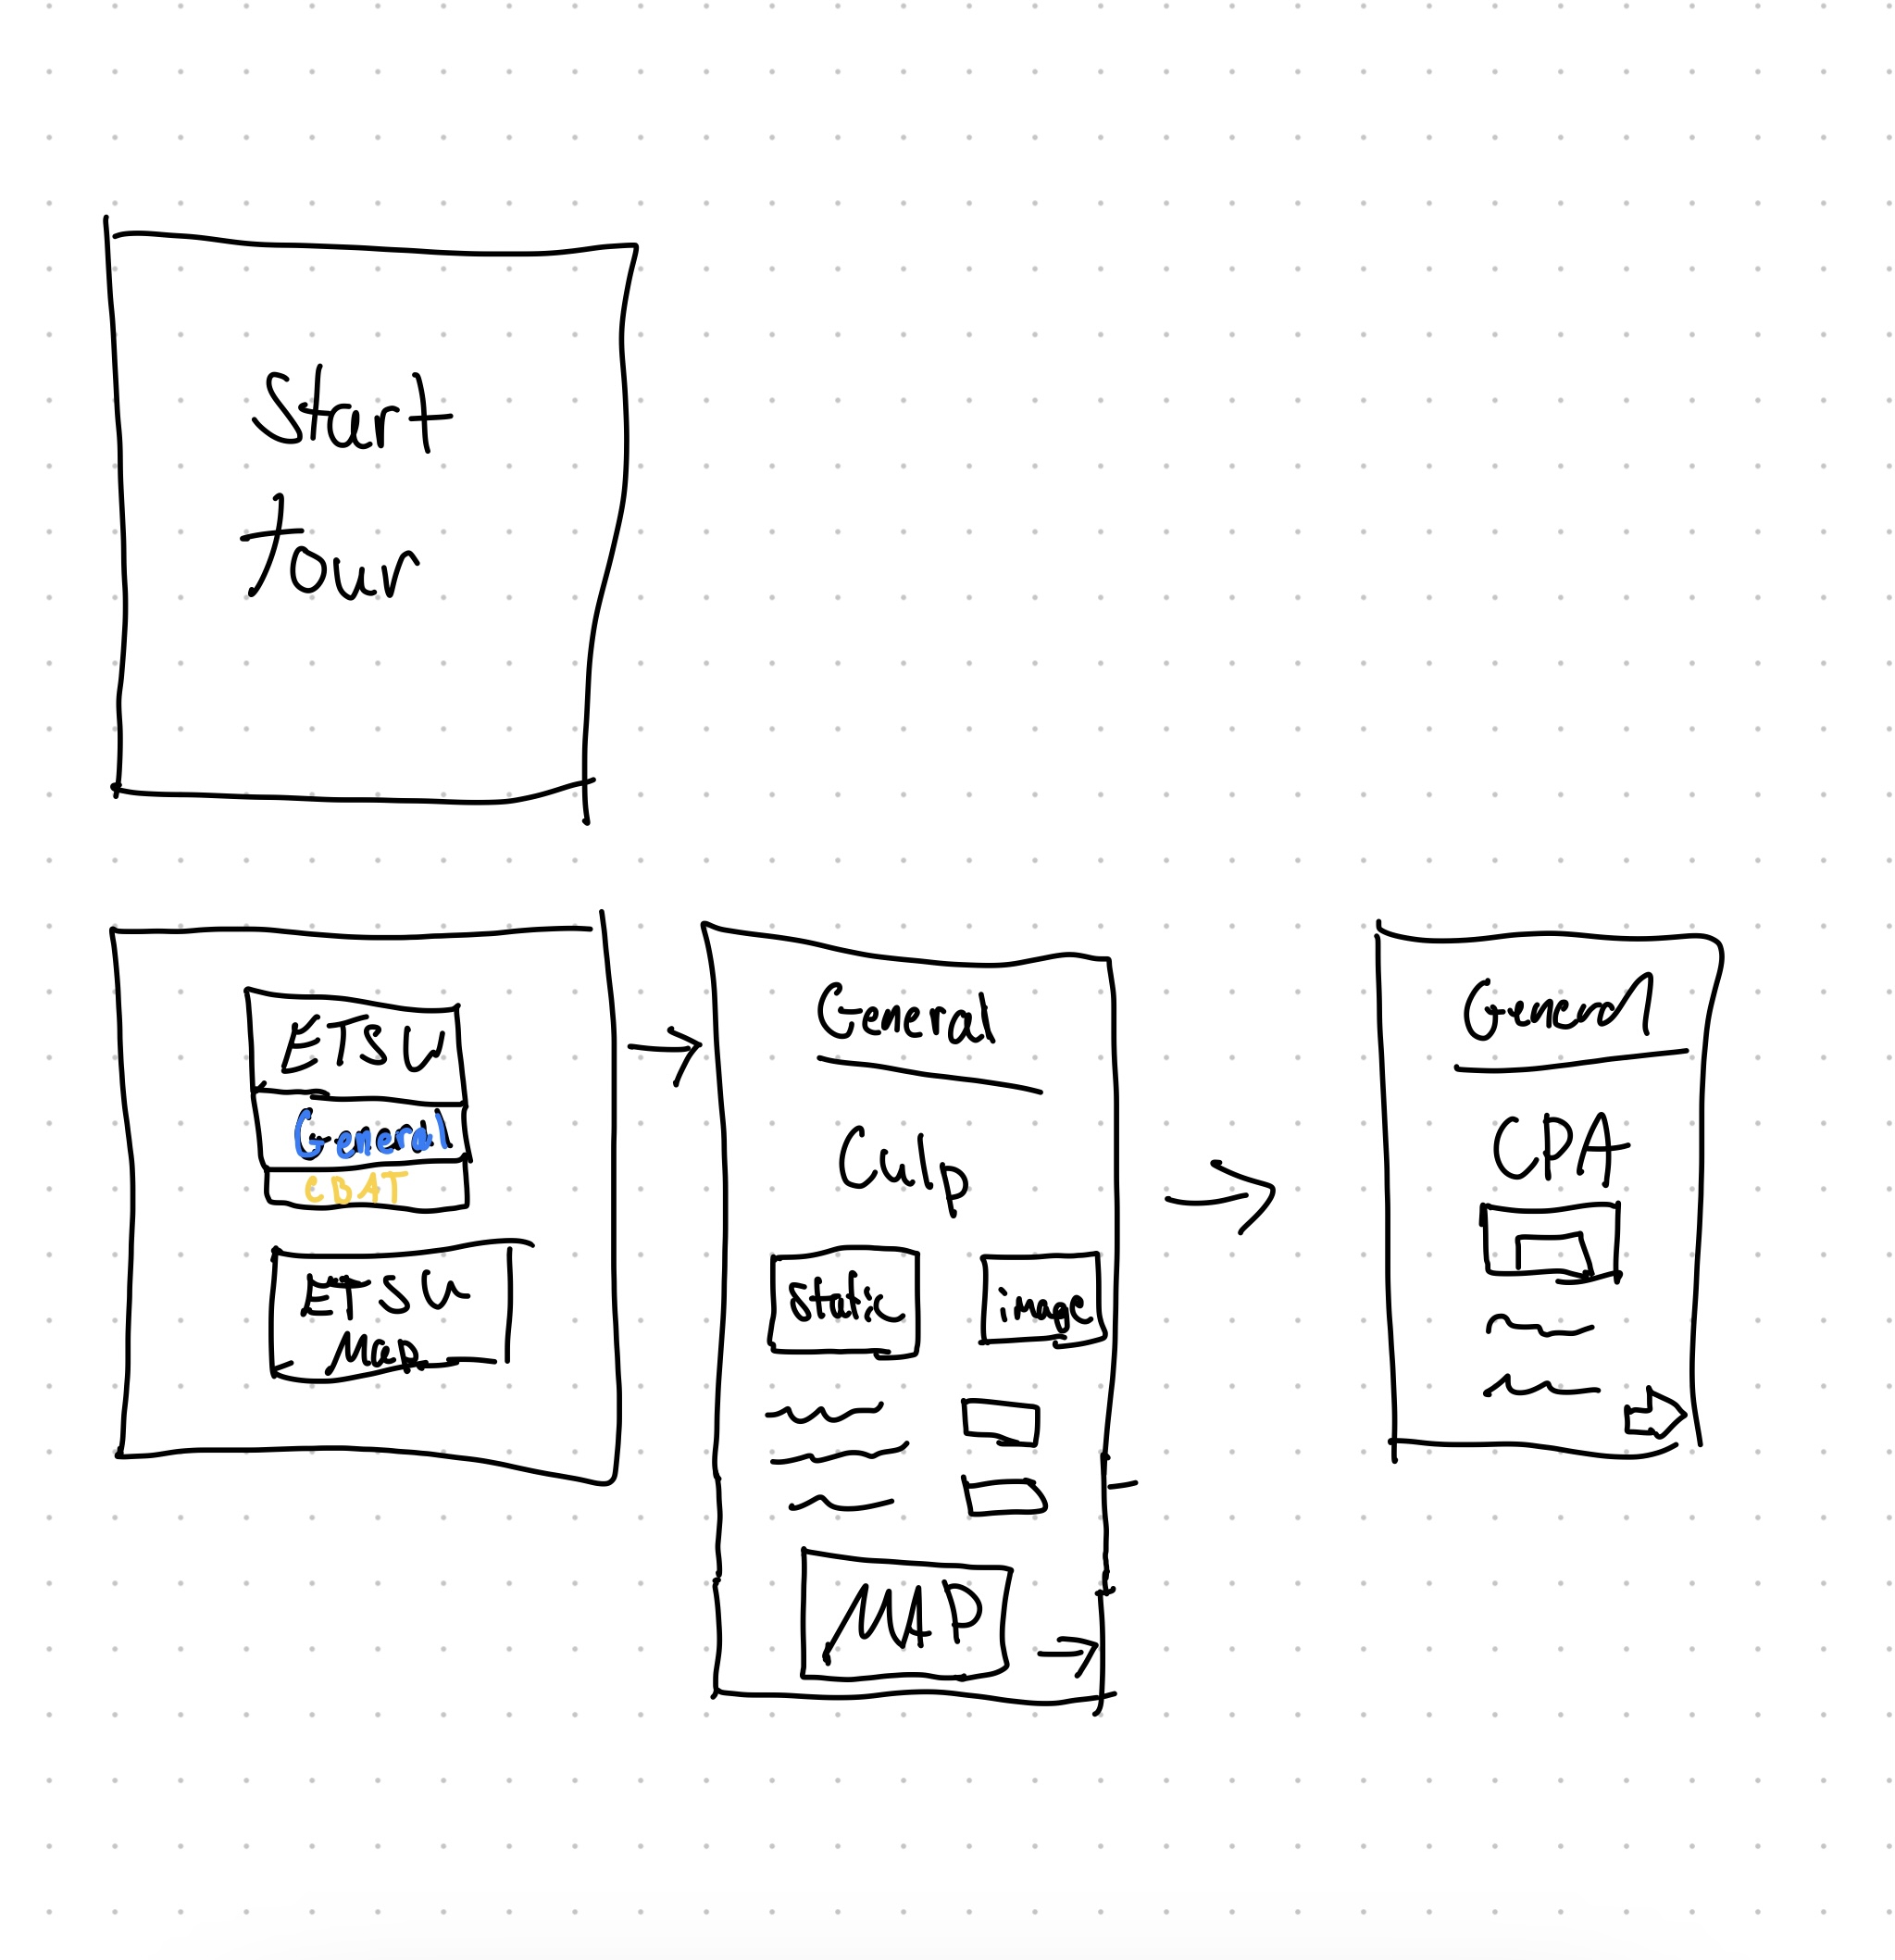 Start
Tour
ETSU
General
CDAT
ETSU
Map
General
Culp
static
image
MAP
General
CPA